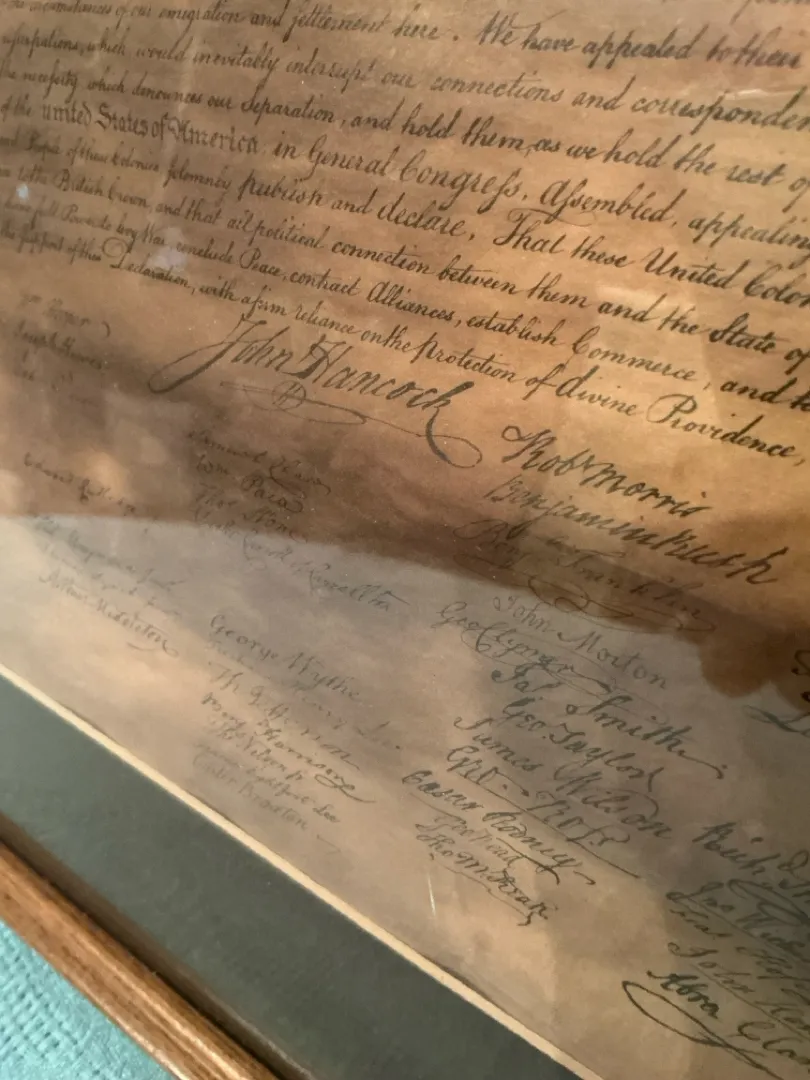 circumstances of our emigration and settlement here. We have appealed to their
usurpations, which would inevitably interrupt our connections and
the necessity which denounces our Separation, and hold them, as we hold the rest of
of the united States of America, in General Congress, Assembled, appealing
of these Colonies, solemnly publish and declare, That these United
to the British Crown, and that all political connection between them and the State of
full Power to levy War, conclude Peace, contract Alliances, establish Commerce, and
the support of this Declaration, with a firm reliance on the protection of divine Providence,
John Hancock
Robt Morris
Benjamin Rush
Benj. Franklin
John Morton
Geo Clymer
Jas. Smith
Geo. Taylor
James Wilson
Geo. Ross
Caesar Rodney
Geo Read
Tho M:Kean
Wm Hooper
Joseph Hewes
Edward Rutledge
Arthur Middleton
Samuel Chase
Wm Paca
Thos Stone
Charles Carroll of Carrollton
George Wythe
Richard Henry Lee
Th Jefferson
Benj Harrison
Thos Nelson jr.
Francis Lightfoot Lee
Carter Braxton
Abra Cla